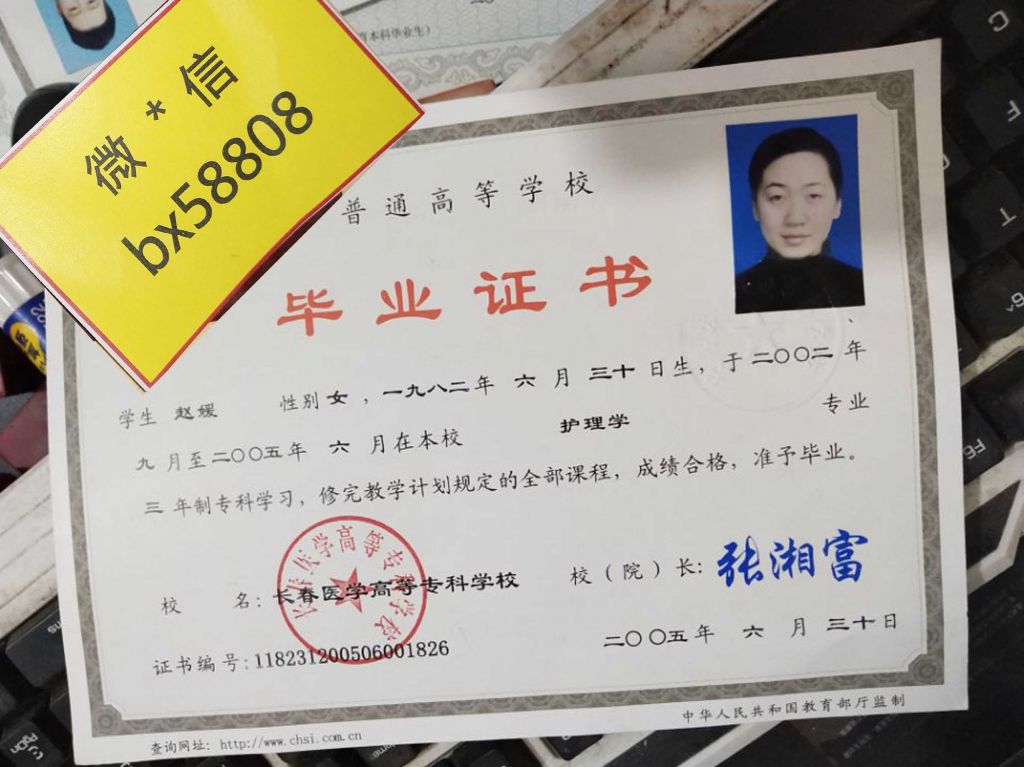 育本科毕业生)
微*信
bx58808
普通高等学校
毕业证书
学生 赵媛 性别 女,一九八二年 六 月 三十 日生,于 二〇〇二 年
九 月至 二〇〇五 年 六 月在本校 护理学 专业
三 年制专科学习,修完教学计划规定的全部课程,成绩合格,准予毕业。
长春医学高等专科学校
校 名:长春医学高等专科学校 校(院)长:张湘富
证书编号:118231200506001826 二〇〇五年 六 月 三十日
查询网址:http://www.chsi.com.cn 中华人民共和国教育部厅监制
C
F
T
6
F6